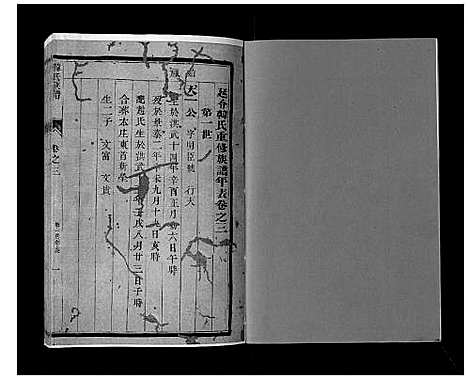 趙斉韓氏重修族譜年表卷之三
第一世
始遷
太一公 字明臣號 行大
生於洪武十四年辛酉正月初六日午時
歿於景泰二年辛未九月十九日亥時
配趙氏生於洪武 年壬戌八月廿三日子時
合葬本庄東首新塋
生二子 文富 文貴
韓氏族譜
卷之三
卷一
一